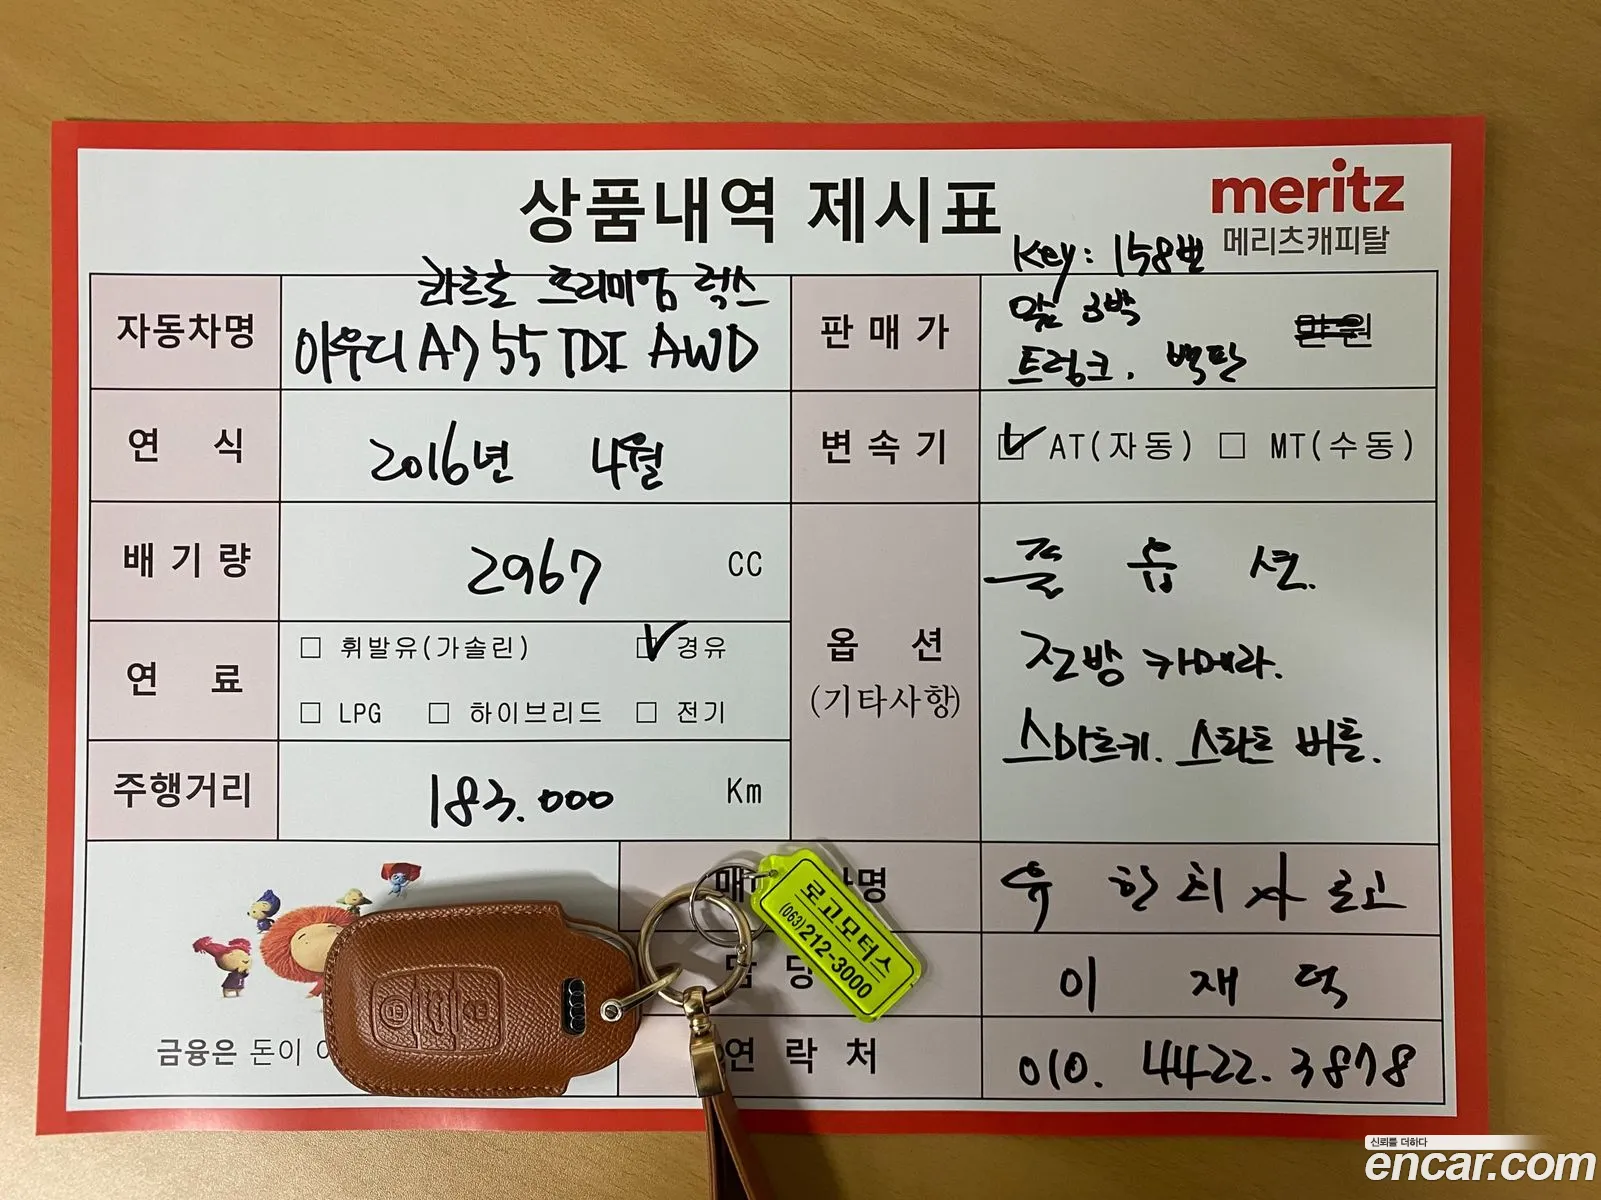 상품내역 제시표
meritz
메리츠캐피탈
Key: 158번
자동차명
콰트로 프리미엄 럭스
아우디 A7 55 TDI AWD
판매가
앞 3박
트렁크. 백판
만원
연 식
2016년 4월
변속기
AT(자동) MT(수동)
배기량
2967 CC
옵 션
(기타사항)
풀 옵 션.
전방 카메라.
스마트키. 스타트 버튼.
연 료
휘발유(가솔린) 경유
LPG 하이브리드 전기
주행거리
183.000 Km
유한회사 로고
이 재 덕
연 락 처
010. 4422. 3878
금융은 돈이
로고모터스
(063)212-3000
신뢰를 더하다
encar.com